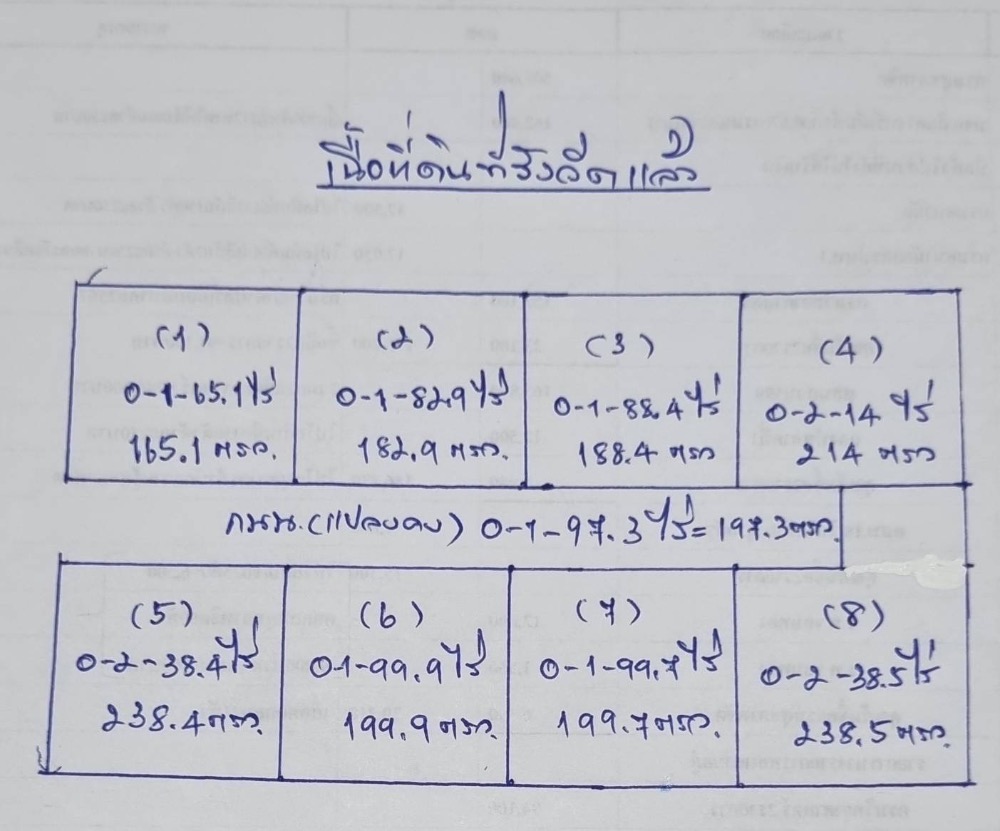 เนื้อที่ดินที่รังวัดแล้ว
(1)
0-1-65.1 ไร่
165.1 ตรว.
(2)
0-1-82.9 ไร่
182.9 ตรว.
(3)
0-1-88.4 ไร่
188.4 ตรว
(4)
0-2-14 ไร่
214 ตรว
ถนน.(แปลงคง) 0-1-97.3 ไร่ = 197.3 ตรว.
(5)
0-2-38.4 ไร่
238.4 ตรว.
(6)
0-1-99.9 ไร่
199.9 ตรว.
(7)
0-1-99.7 ไร่
199.7 ตรว.
(8)
0-2-38.5 ไร่
238.5 ตรว.